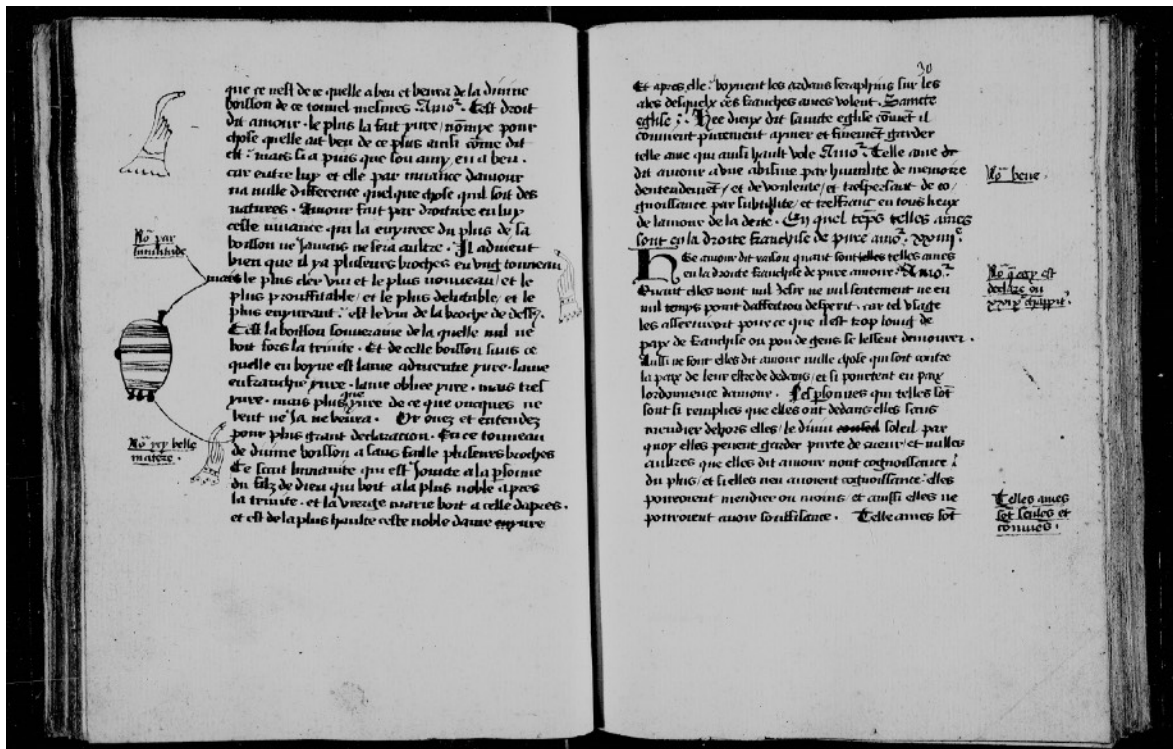 que ce nest de ce quelle a beu et beuvra de la divine
boisson de ce tonnel mesmes Amoʳ. Cest droit
dit amour. le plus la fait yure / nōmpe pour
chose quelle ait beu de ce plus ainsi cōme dit
est : mais si a puis que son amy en a beu.
car entre luy et elle par muance damour
na nulle difference quelque chose quil soit des
natures. Amour fait par droiture en luy
ceste muance qui la enyuree du plus de sa
Nōᵃ par similitude
boisson ne Jamais ne sera aultre. Il aduient
bien que il ya pluseurs broches en vng tonneau
mais le plus cler vin et le plus nouueau / et le
plus prouffitable / et le plus delitable / et le
plus enyurant : est le vin de la broche de dess9.
Cest la boisson souueraine de la quelle nul ne
boit fors la trinite. Et de celle boisson sans ce
quelle en boyue est lame adnientee yure. lame
enfranchie yure. lame obliee yure. mais tres
yure. mais plus que yure de ce que oncques ne
beut ne Ja ne beuvra. Or oiez et entendez
pour plus grant declaration. En ce tonneau
Nōᵃ ycy belle matere.
de diuine boisson a sans faille pluseurs broches
Ce scait humanite qui est Jointe a la psonne
du filz de dieu qui boit a la plus noble apres
la trinite. et la vierge marie boit a celle dapres.
et est de la plus haulte ceste noble dame yure
30
Et apres elle : boyuent les ardans seraphins sur les
ales desquelx ces franches ames volent. Saincte
eglise : Hee dieux dit saincte eglise cōuiet il
conuient purement aymer et finemēt garder
telle ame qui ainsi hault vole Amoʳ. Telle ame
dit amour a vne abisme par humilite de memoire
Nōᵃ bene.
dentendemēt / et de voulente / et trespersant de co /
gnoissance par subtilite / et tresfranc en tous lieux
de lamour de la deite. En quel tēps telles ames
sont en la droite franchise de pure amoʳ. xxiiijᵉ.
Hee amour dit raison quant sont telles telles ames
en la droite franchise de pure amour : Amoʳ.
Nōᵃ q̄ cecy est declare ou xxixᵉ chappitʳ.
Quant elles nont nul desir ne nul sentement ne en
nul temps point daffection desperit. car tel vsage
les asseruiroit pour ce que cest trop loing de
paix de franchise ou pou de gens se lessent demourer.
Aussi ne font elles dit amour nulle chose qui soit contre
la paix de leur estre de dedans / et si pourtent en paix
lordonnence damour. Les psonnes qui telles sōt
sont si remplies que elles ont dedans elles sans
mendier dehors elles / le diuin soleil par
quoy elles peuent garder purte de cueur / et nulles
aultres que elles dit amour nont cognoissance
du plus / et si elles nen auoient cognoissance : elles
pourroient mendier ou moins / et aussi elles ne
Telles ames sōt seules et cōmunes.
pourroient auoir souffisance. Telle ames sōt